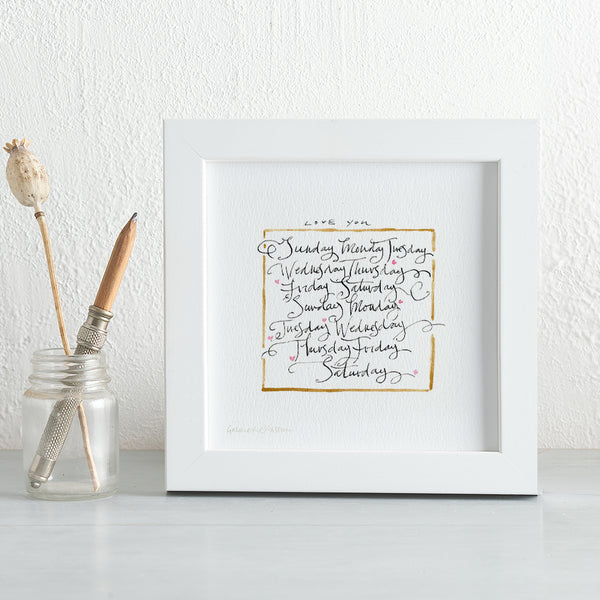 LOVE YOU
Sunday Monday Tuesday
Wednesday Thursday
Friday Saturday
Sunday Monday
Tuesday Wednesday
Thursday Friday
Saturday